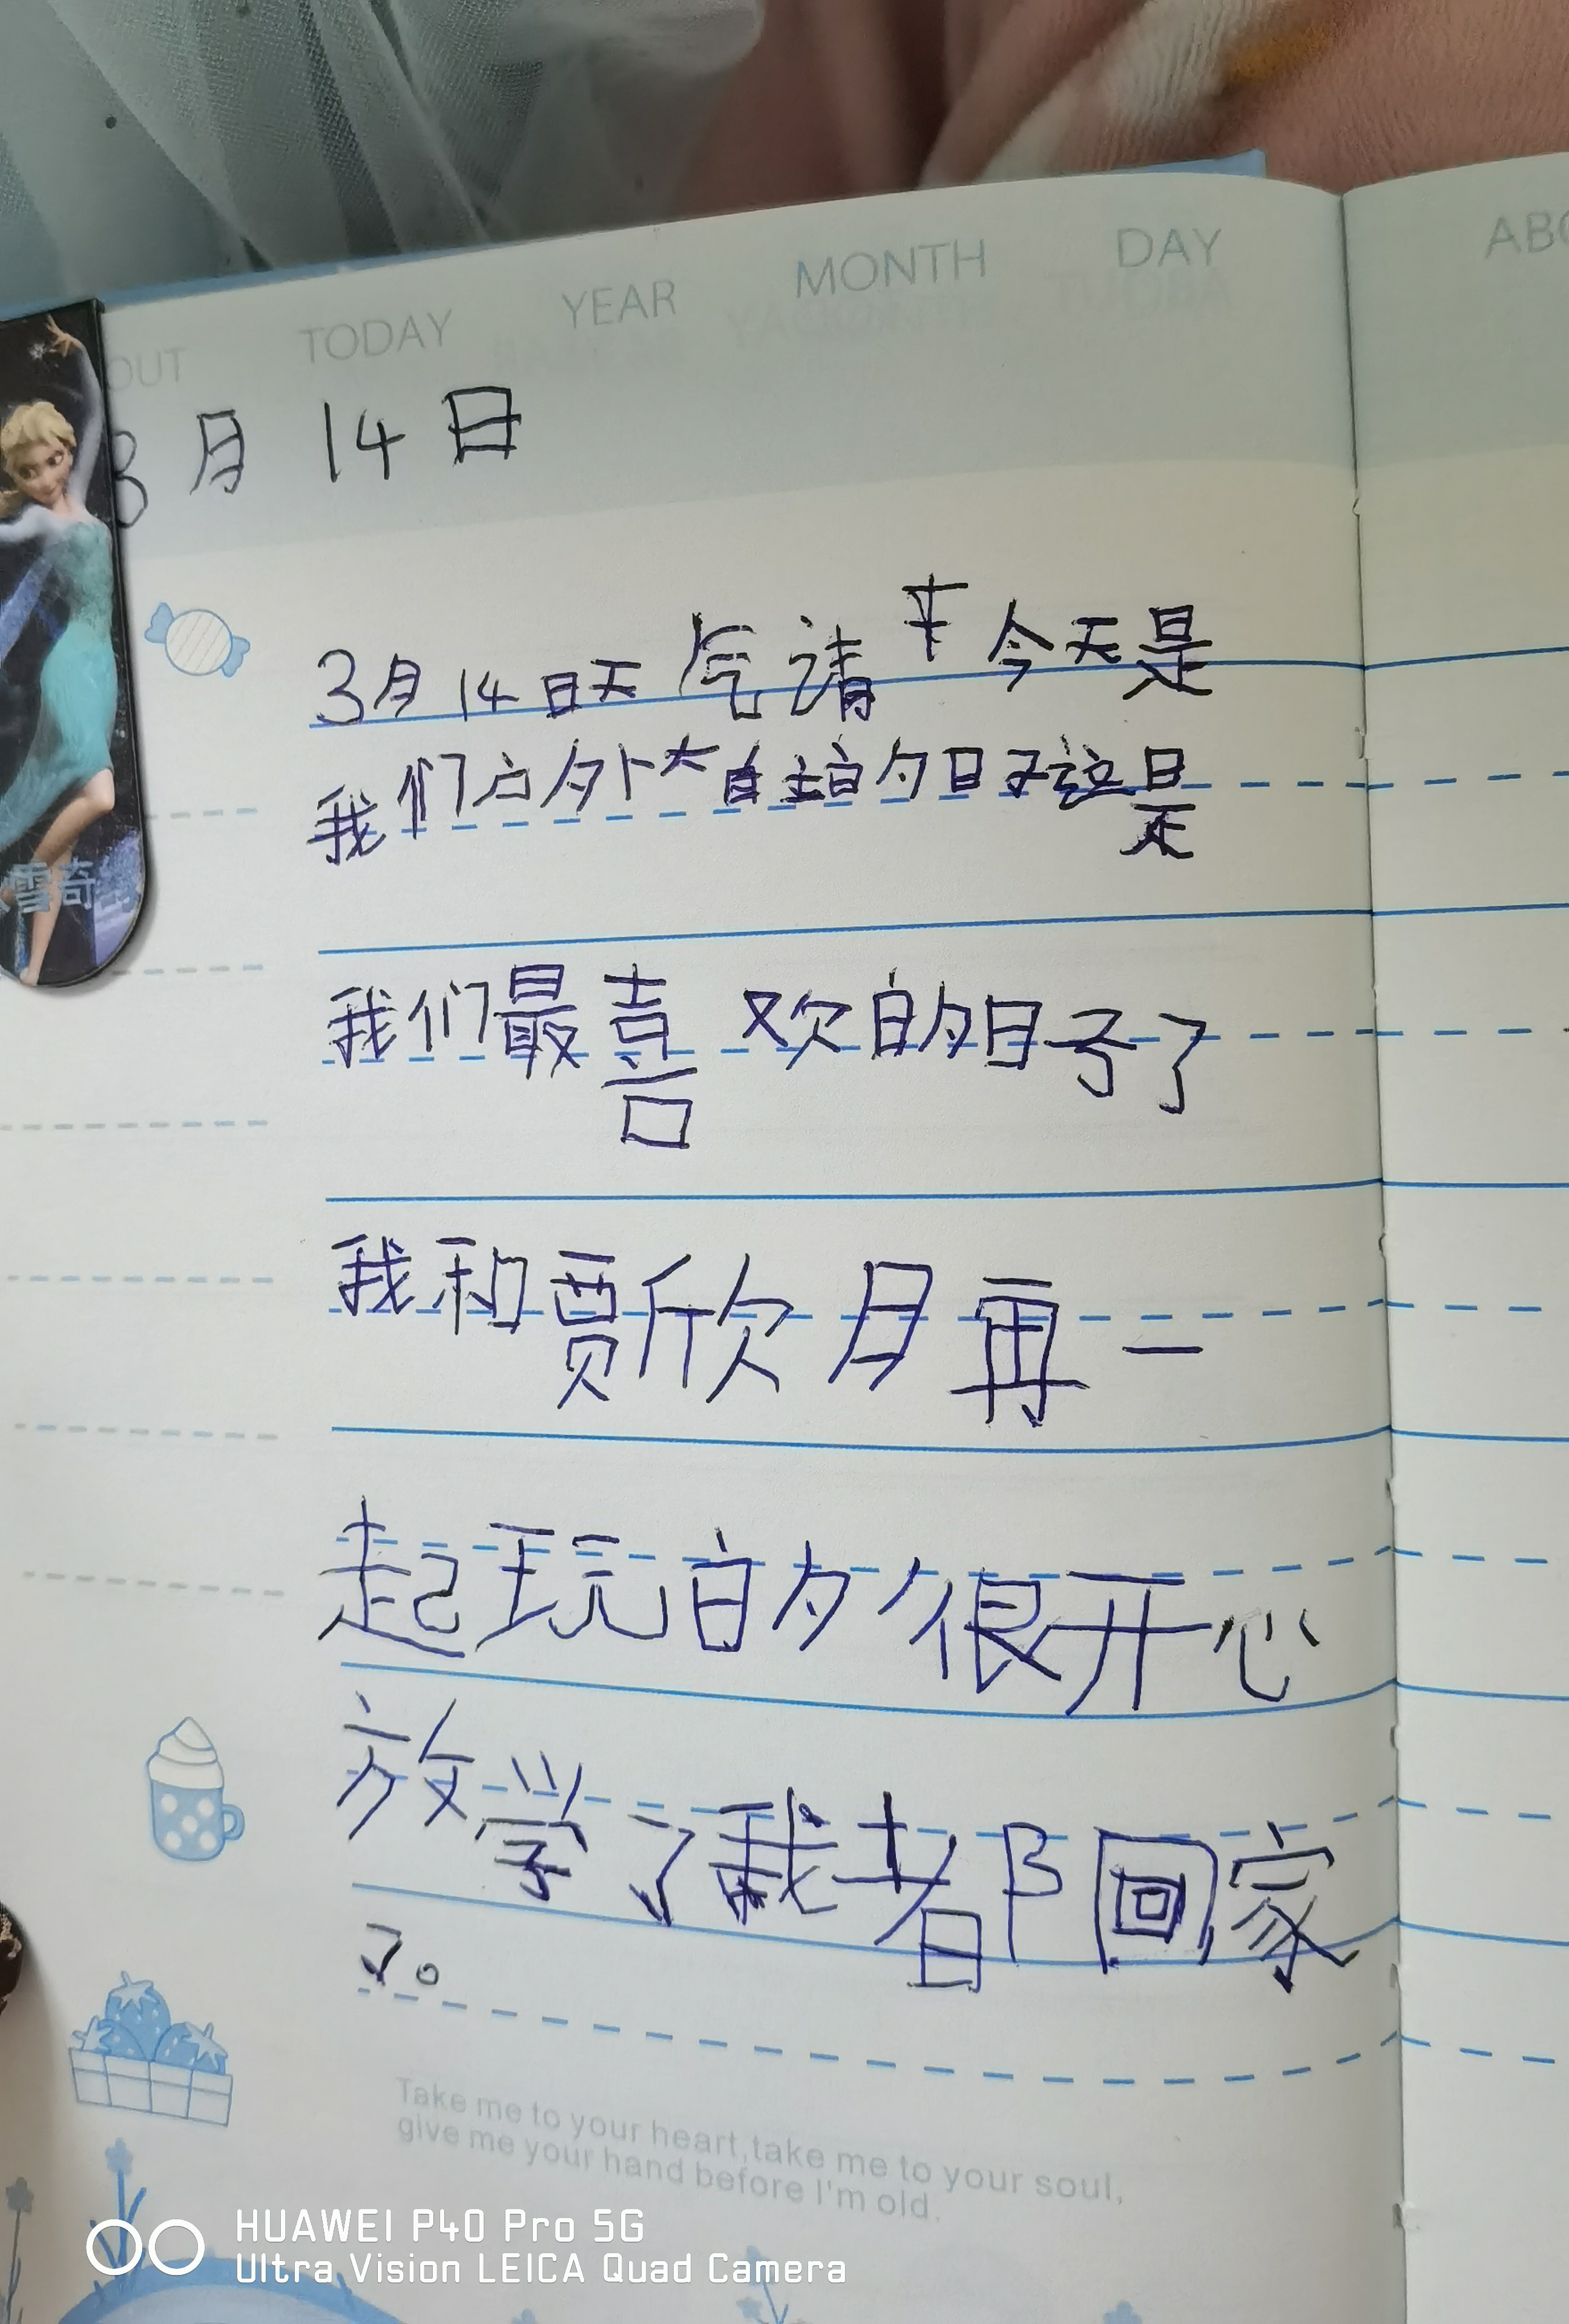 ABO
OUT TODAY YEAR MONTH DAY
3月 14日
3月14日天气请 今天是
我们户外大自主的日子这是
我们最喜欢的日子了
我和贾欣月再一
起玩的很开心
放学了我都回家
了。
雪奇
Take me to your heart,take me to your soul,
give me your hand before I'm old.
HUAWEI P40 Pro 5G
Ultra Vision LEICA Quad Camera